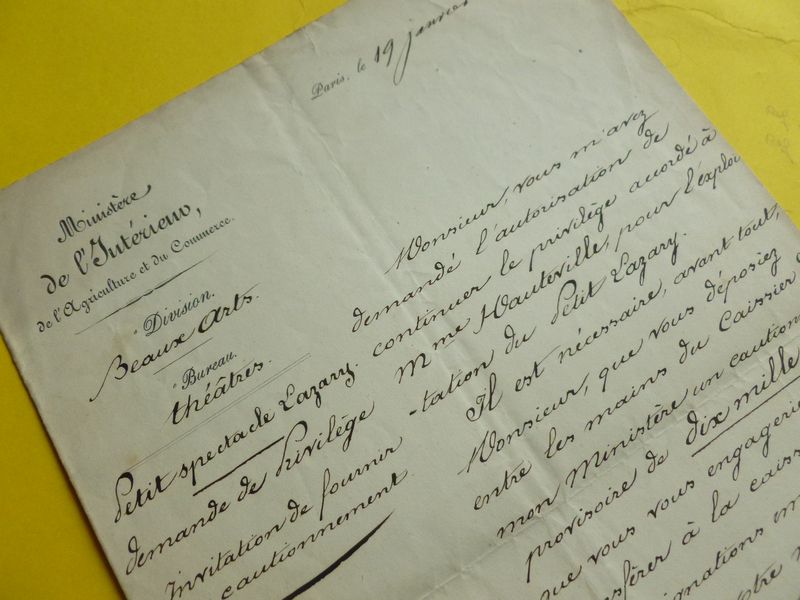 Paris, le 19 janvier
Ministère
de l'Intérieur,
de l'Agriculture et du Commerce.
Division.
Beaux Arts.
Bureau.
théâtres.
Petit spectacle Lazary.
demande de Privilège
Invitation de fournir
cautionnement.
Monsieur, vous m'avez
demandé l'autorisation de
continuer le privilège accordé à
Mme Hauteville, pour l'exploi
-tation du Petit Lazary.
Il est nécessaire, avant tout,
Monsieur, que vous déposiez
entre les mains du Caissier
mon Ministère un caution
provisoire de dix mille
que vous vous engagerie
sférer à la caiss